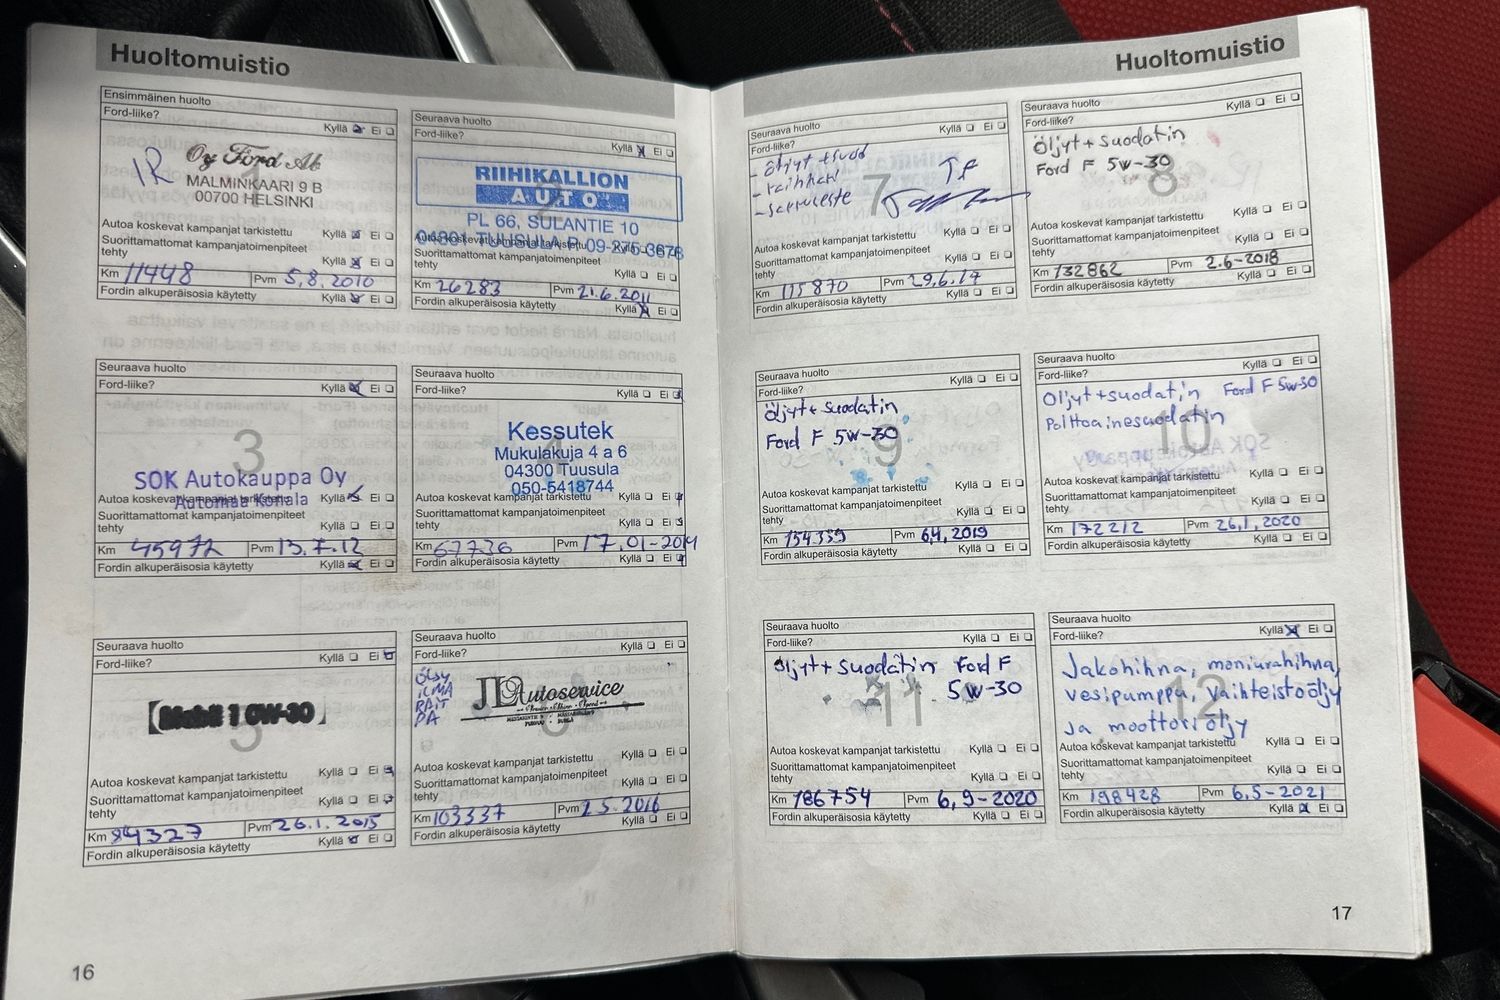 Huoltomuistio
Ensimmäinen huolto
Ford-liike?
Kyllä Ei
1
Oy Ford Ab
MALMINKAARI 9 B
00700 HELSINKI
Autoa koskevat kampanjat tarkistettu Kyllä Ei
Suorittamattomat kampanjatoimenpiteet
tehty Kyllä Ei
Km 11448 Pvm 5.8.2010
Fordin alkuperäisosia käytetty Kyllä Ei
Seuraava huolto
Ford-liike?
Kyllä Ei
2
RIIHIKALLION
AUTO
PL 66, SULANTIE 10
04301 TUUSULA P. 09-275 3678
Autoa koskevat kampanjat tarkistettu
Suorittamattomat kampanjatoimenpiteet
tehty Kyllä Ei
Km 26283 Pvm 21.6.2011
Fordin alkuperäisosia käytetty Kyllä Ei
Seuraava huolto
Ford-liike? Kyllä Ei
3
SOK Autokauppa Oy
Automaa Konala
Autoa koskevat kampanjat tarkistettu Kyllä Ei
Suorittamattomat kampanjatoimenpiteet
tehty Kyllä Ei
Km 45972 Pvm 13.7.12
Fordin alkuperäisosia käytetty Kyllä Ei
Seuraava huolto
Ford-liike? Kyllä Ei
4
Kessutek
Mukulakuja 4 a 6
04300 Tuusula
050-5418744
Autoa koskevat kampanjat tarkistettu Kyllä Ei
Suorittamattomat kampanjatoimenpiteet
tehty Kyllä Ei
Km 67736 Pvm 17.01-2014
Fordin alkuperäisosia käytetty Kyllä Ei
Seuraava huolto
Ford-liike? Kyllä Ei
5
Mobil 1 0W-30
Autoa koskevat kampanjat tarkistettu Kyllä Ei
Suorittamattomat kampanjatoimenpiteet
tehty Kyllä Ei
Km 84327 Pvm 26.1.2015
Fordin alkuperäisosia käytetty Kyllä Ei
Seuraava huolto
Ford-liike? Kyllä Ei
6
ÖLJY
ILMA
RAIT
PA
JL Autoservice
Autoa koskevat kampanjat tarkistettu Kyllä Ei
Suorittamattomat kampanjatoimenpiteet
tehty Kyllä Ei
Km 103337 Pvm 2.5.2016
Fordin alkuperäisosia käytetty Kyllä Ei
16
Huoltomuistio
Seuraava huolto
Ford-liike? Kyllä Ei
7
- öljyt + suod
- raitihari
- jarruneste
Autoa koskevat kampanjat tarkistettu Kyllä Ei
Suorittamattomat kampanjatoimenpiteet
tehty Kyllä Ei
Km 115870 Pvm 29.6.17
Fordin alkuperäisosia käytetty Kyllä Ei
Seuraava huolto
Ford-liike? Kyllä Ei
8
Öljyt + suodatin
Ford F 5W-30
Autoa koskevat kampanjat tarkistettu Kyllä Ei
Suorittamattomat kampanjatoimenpiteet
tehty Kyllä Ei
Km 132862 Pvm 2.6-2018
Fordin alkuperäisosia käytetty Kyllä Ei
Seuraava huolto
Ford-liike? Kyllä Ei
9
Öljyt + suodatin
Ford F 5W-30
Autoa koskevat kampanjat tarkistettu Kyllä Ei
Suorittamattomat kampanjatoimenpiteet
tehty Kyllä Ei
Km 154339 Pvm 6.4.2019
Fordin alkuperäisosia käytetty Kyllä Ei
Seuraava huolto
Ford-liike? Kyllä Ei
10
Öljyt + suodatin Ford F 5W-30
Polttoainesuodatin
Autoa koskevat kampanjat tarkistettu Kyllä Ei
Suorittamattomat kampanjatoimenpiteet
tehty Kyllä Ei
Km 172212 Pvm 26.1.2020
Fordin alkuperäisosia käytetty Kyllä Ei
Seuraava huolto
Ford-liike? Kyllä Ei
11
Öljyt + suodatin Ford F
5W-30
Autoa koskevat kampanjat tarkistettu Kyllä Ei
Suorittamattomat kampanjatoimenpiteet
tehty Kyllä Ei
Km 186754 Pvm 6.9-2020
Fordin alkuperäisosia käytetty Kyllä Ei
Seuraava huolto
Ford-liike? Kyllä Ei
12
Jakohihna, moniurahihna,
vesipumppu, vaihteistoöljy
ja moottoriöljy
Autoa koskevat kampanjat tarkistettu Kyllä Ei
Suorittamattomat kampanjatoimenpiteet
tehty Kyllä Ei
Km 198428 Pvm 6.5-2021
Fordin alkuperäisosia käytetty Kyllä Ei
17